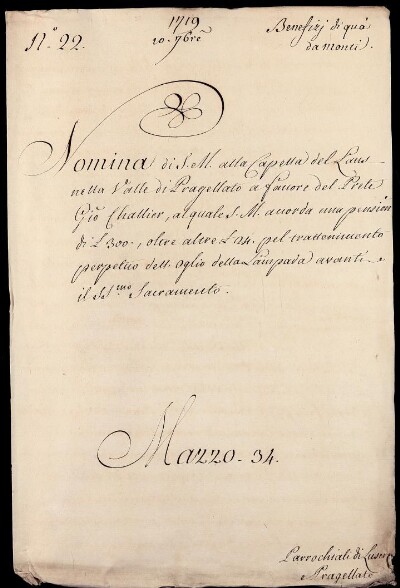 N.° 22.
1719
20. 7bre
Benefizj di quà
da monti.
Nomina di S. M. alla Capella del Laus
nella Valle di Pragellato a favore del Prete
Gio Challier, al quale S. M. acorda una pension
di L 300., oltre altre L 24. pel trattenimento
perpetuo dell' oglio della Lampada avanti
il SS.mo Sacramento.
Mazzo. 34.
Parrochiali di
e Pragellato